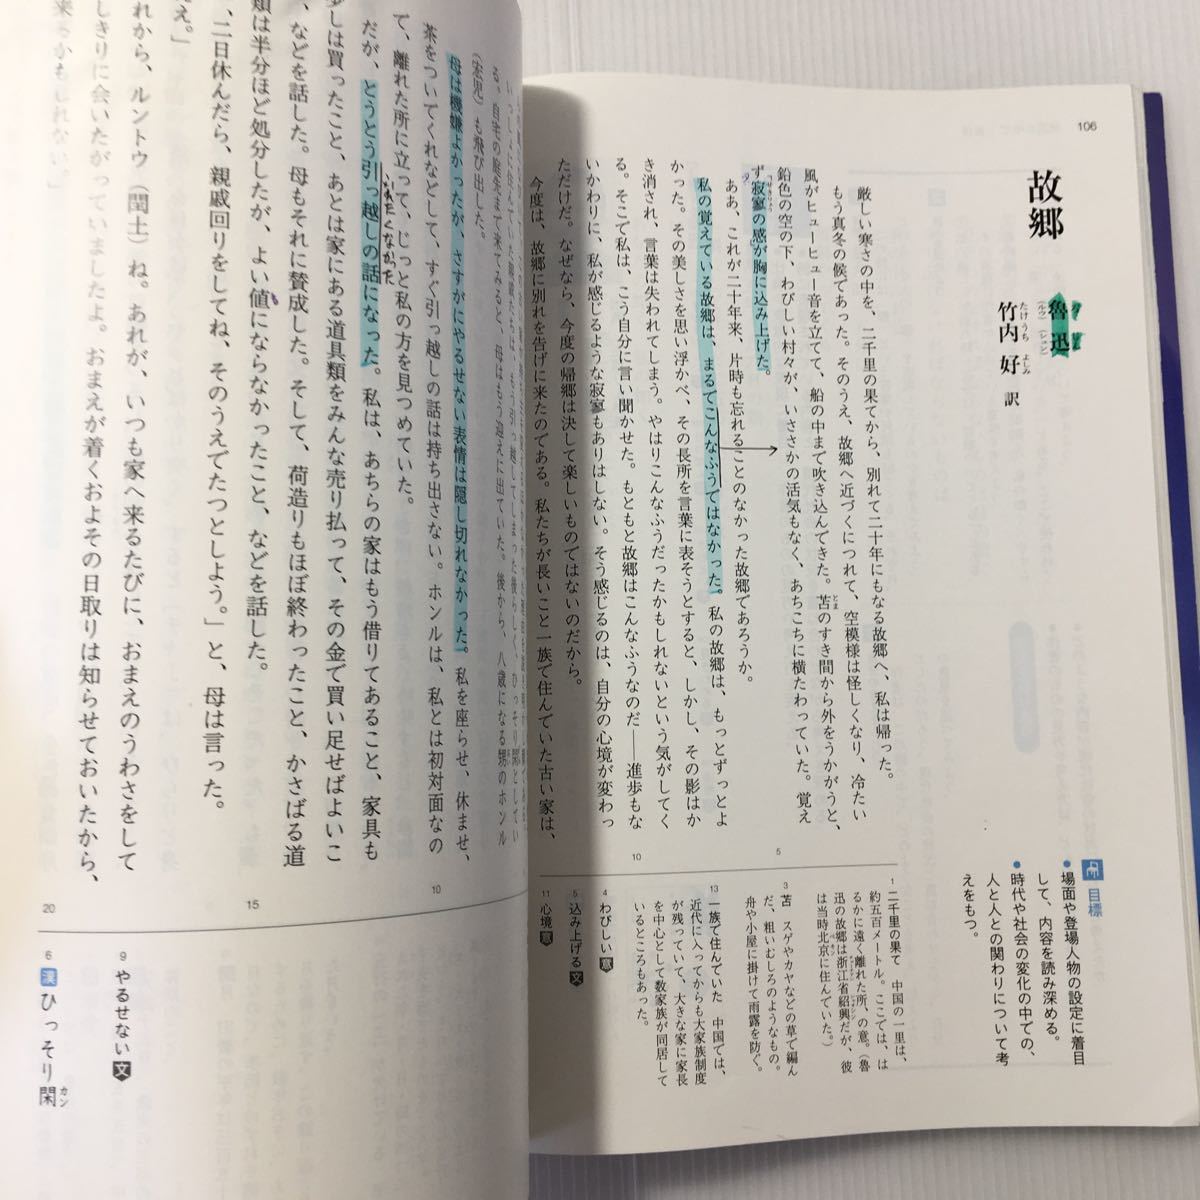 106
故郷
魯迅
竹内 好 訳
厳しい寒さの中を、二千里の果てから、別れて二十年にもなる故郷へ、私は帰った。
もう真冬の候であった。そのうえ、故郷へ近づくにつれて、空模様は怪しくなり、冷たい
風がヒューヒュー音を立てて、船の中まで吹き込んできた。苫のすき間から外をうかがうと、
鉛色の空の下、わびしい村々が、いささかの活気もなく、あちこちに横たわっていた。覚え
ず寂寥の感が胸に込み上げた。
ああ、これが二十年来、片時も忘れることのなかった故郷であろうか。
私の覚えている故郷は、まるでこんなふうではなかった。私の故郷は、もっとずっとよ
かった。その美しさを思い浮かべ、その長所を言葉に表そうとすると、しかし、その影はか
き消され、言葉は失われてしまう。やはりこんなふうだったかもしれないという気がしてく
る。そこで私は、こう自分に言い聞かせた。もともと故郷はこんなふうなのだ——進歩もな
いかわりに、私が感じるような寂寥もありはしない。そう感じるのは、自分の心境が変わっ
ただけだ。なぜなら、今度の帰郷は決して楽しいものではないのだから。
今度は、故郷に別れを告げに来たのである。私たちが長いこと一族で住んでいた古い家は、
5
10
目標
●場面や登場人物の設定に着目
して、内容を読み深める。
●時代や社会の変化の中での、
人と人との関わりについて考
えをもつ。
1 二千里の果て 中国の一里は、
約五百メートル。ここでは、は
るかに遠く離れた所、の意。(魯
迅の故郷は浙江省紹興だが、彼
は当時北京に住んでいた。)
3 苫 スゲやカヤなどの草で編ん
だ、粗いむしろのようなもの。
舟や小屋に掛けて雨露を防ぐ。
13 一族で住んでいた 中国では、
近代に入ってからも大家族制度
が残っていて、大きな家に家長
を中心として数家族が同居して
いるところもあった。
4 わびしい 意
5 込み上げる 文
11 心境 意
る。自宅の庭先まで来てみると、母はもう迎えに出ていた。後から、八歳になる甥のホンル
(宏児)も飛び出した。
母は機嫌よかったが、さすがにやるせない表情は隠し切れなかった。私を座らせ、休ませ、
茶をついでくれなどして、すぐ引っ越しの話は持ち出さない。ホンルは、私とは初対面なの
で、離れた所に立って、じっと私の方を見つめていた。
ふれたくなかった
だが、とうとう引っ越しの話になった。私は、あちらの家はもう借りてあること、家具も
少しは買ったこと、あとは家にある道具類をみんな売り払って、その金で買い足せばよいこ
と、などを話した。母もそれに賛成した。そして、荷造りもほぼ終わったこと、かさばる道
類は半分ほど処分したが、よい値にならなかったこと、などを話した。
、二日休んだら、親戚回りをしてね、そのうえでたつとしよう。」と、母は言った。
え。」
れから、ルントウ(閏土)ね。あれが、いつも家へ来るたびに、おまえのうわさをして
しきりに会いたがっていましたよ。おまえが着くおよその日取りは知らせておいたから、
来るかもしれない。」
10
15
20
9 やるせない 文
6 漢 ひっそり閑